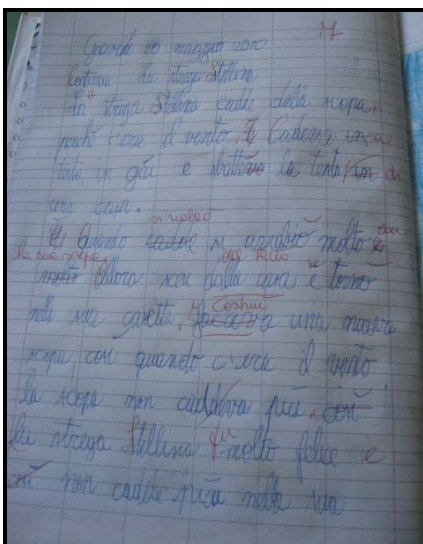 17
Giovedì 20 maggio 2010
Continua la strega Stellina
La strega Stellina cadde dalla scopa,
perché c'era il vento. Cadeva in a
testa in giù e la testa in di
una casa. si rialzò
Quando cadde si arrabbiò molto con
la sua scopa dal tetto
molto Allora scese dalla casa e tornò
nella sua casetta, Costruì una nuova
scopa così quando c'era il vento
la scopa non cadeva più, così
La strega Stellina fu molto felice e
così non cadde più nella sua